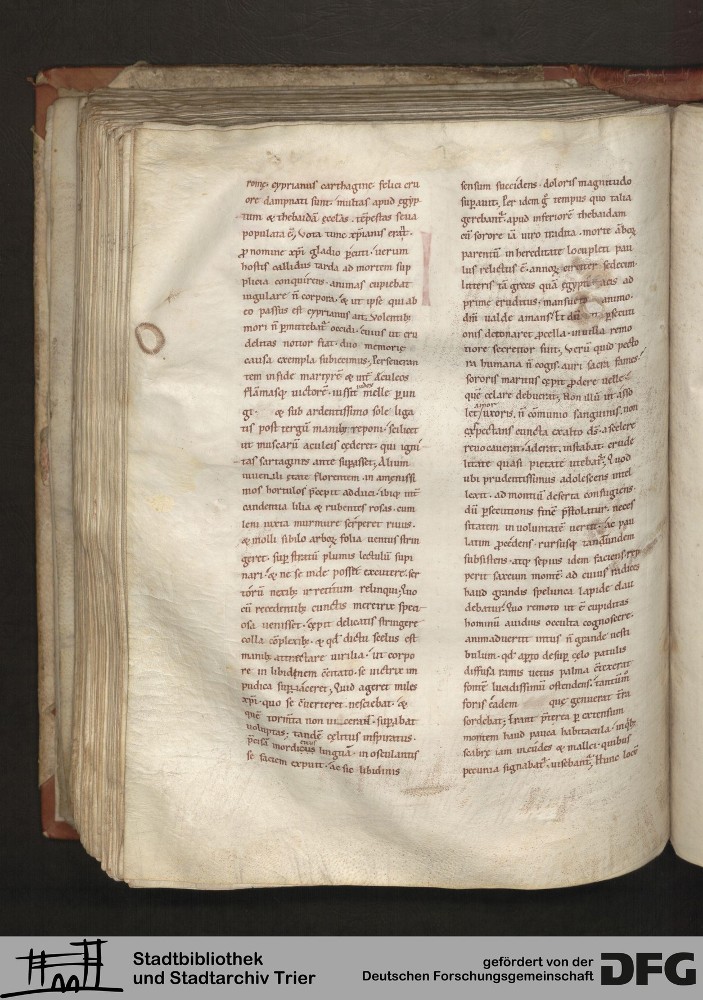 romę. cyprianus carthagine. felici cru
ore dampnati sunt. multas apud egyp
tum & thebaidā ęcclas. tēpestas seua
populata ē; Vota tunc xp̄ianis erat.
ꝓ nomine xp̄i gladio ꝑcuti. uerum
hostis callidus tarda ad mortem sup
plicia conquirens. animas cupiebat
iugulare n̄ corpora. & ut ipse qui ab
eo passus est cyprianus ait. uolentib;
mori n̄ ꝑmittebat᷑ occidi. cuius ut cru
delitas notior fiat. duo memorię
causa exempla subicimus. Perseueran
tem in fide martyrē & int̄ aculeos
flāmasq; uictorē. iussit melle ꝑun
gi. & sub ardentissimo sole liga
tis post tergū manib; reponi. scilicet
ut muscarū aculeis cęderet. qui igni
tas sartagines ante sup̄asset; Alium
iuuenali ętate florentem. in amenissi
mos hortulos p̄cepit adduci. ibiq; int̄
candentia lilia & rubentes rosas. cum
leni iuxta murmure serperet riuus.
& molli sibilo arboꝝ folia uentus strin
geret. suꝑ stratū plumis lectulū supi
nari. & ne se inde posset excutere. ser
torū nexib; irretitum relinqui; Quo
cū recedentib; cunctis meretrix speci
osa uenisset. cępit delicatis stringere
colla cōplexib; & qđ dictu scelus est
manib; attrectare uirilia. ut corpo
re in libidinem cōcitato. se uictrix im
pudica suꝑiaceret; Quid ageret miles
xp̄i. quo se ūerteret nesciebat. &
quē torm̄ta non uicerant. suꝑabat
uoluptas; tandē cęlitus inspiratus.
p̄cisa mordicus linguā. in osculantis
se faciem expuit. ac sic libidinis
sensum succidens. doloris magnitudo
suꝑauit; Per idem g̊ tempus quo talia
gerebant᷑. apud inferiorē thebaidam
cū sorore iā uiro tradita. morte āboꝝ
parentū in hereditate locupleti pau
lus relictus ē. annoꝝ circiter sedecim.
litteris tā grecis quā egyptiacis ad
prime eruditus. mansueto animo.
dm̄ ualde amans; Et dū ꝑsecuti
onis detonaret ꝓcella. in uilla remo
tiore secretior fuit; Verū quid pecto
ra humana n̄ cogis. auri sacra fames?
sororis maritus cępit ꝓdere uelle.
quē celare debuerat; Non illū ut asso
let uxoris, n̄ cōmunio sanguinis. non
exspectans cuncta exalto ds̄. a scelere
reuocauerat. aderat. instabat. crude
litate quasi pietate utebat᷑; Quod
ubi prudentissimus adolescens intel
lexit. ad montiū deserta confugiens.
dū ꝑsecutionis finē p̄stolatur. neces
sitatem in uoluntatē uertit. ac pau
latim ꝓcedens. rursusq; tandundem
subsistens. atq; sepius idem faciens. rep
perit saxeum montē. ad cuius radices
haud grandis spelunca lapide clau
debatur; Quo remoto ut ē cupiditas
hominū auidius occulta cognoscere.
animaduertit intus n̄ grande uesti
bulum. qđ aꝑto desuꝑ cęlo patulis
diffusa ramis uetus palma cōtexerat
fontē lucidissimū ostendens. tantūm
foris eadem quę genuerat tr̄ra
sorbebat; Erant p̄terea ꝑ extensum
montem haud pauca habitacula. inqb;
scabrę iam incudes & mallei. quibus
pecunia signabat᷑ uisebant᷑; Hunc locū
Stadtbibliothek
und Stadtarchiv Trier
gefördert von der
Deutschen Forschungsgemeinschaft
DFG